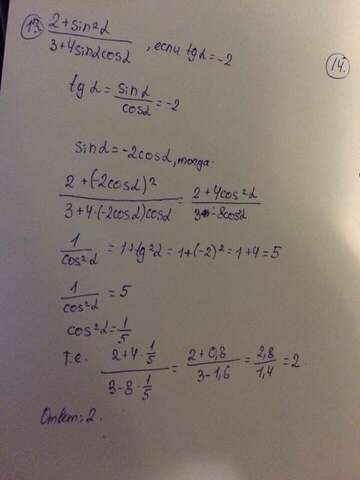 13. (2+sin²α)/(3+4sinαcosα), если tgα=-2
14.
tgα = sinα/cosα = -2
sinα = -2cosα, тогда
(2+(-2cosα)²)/(3+4·(-2cosα)cosα) = (2+4cos²α)/(3-8cos²α)
1/cos²α = 1+tg²α = 1+(-2)² = 1+4 = 5
1/cos²α = 5
cos²α = 1/5
т.е. (2+4·1/5)/(3-8·1/5) = (2+0,8)/(3-1,6) = 2,8/1,4 = 2
Ответ: 2.